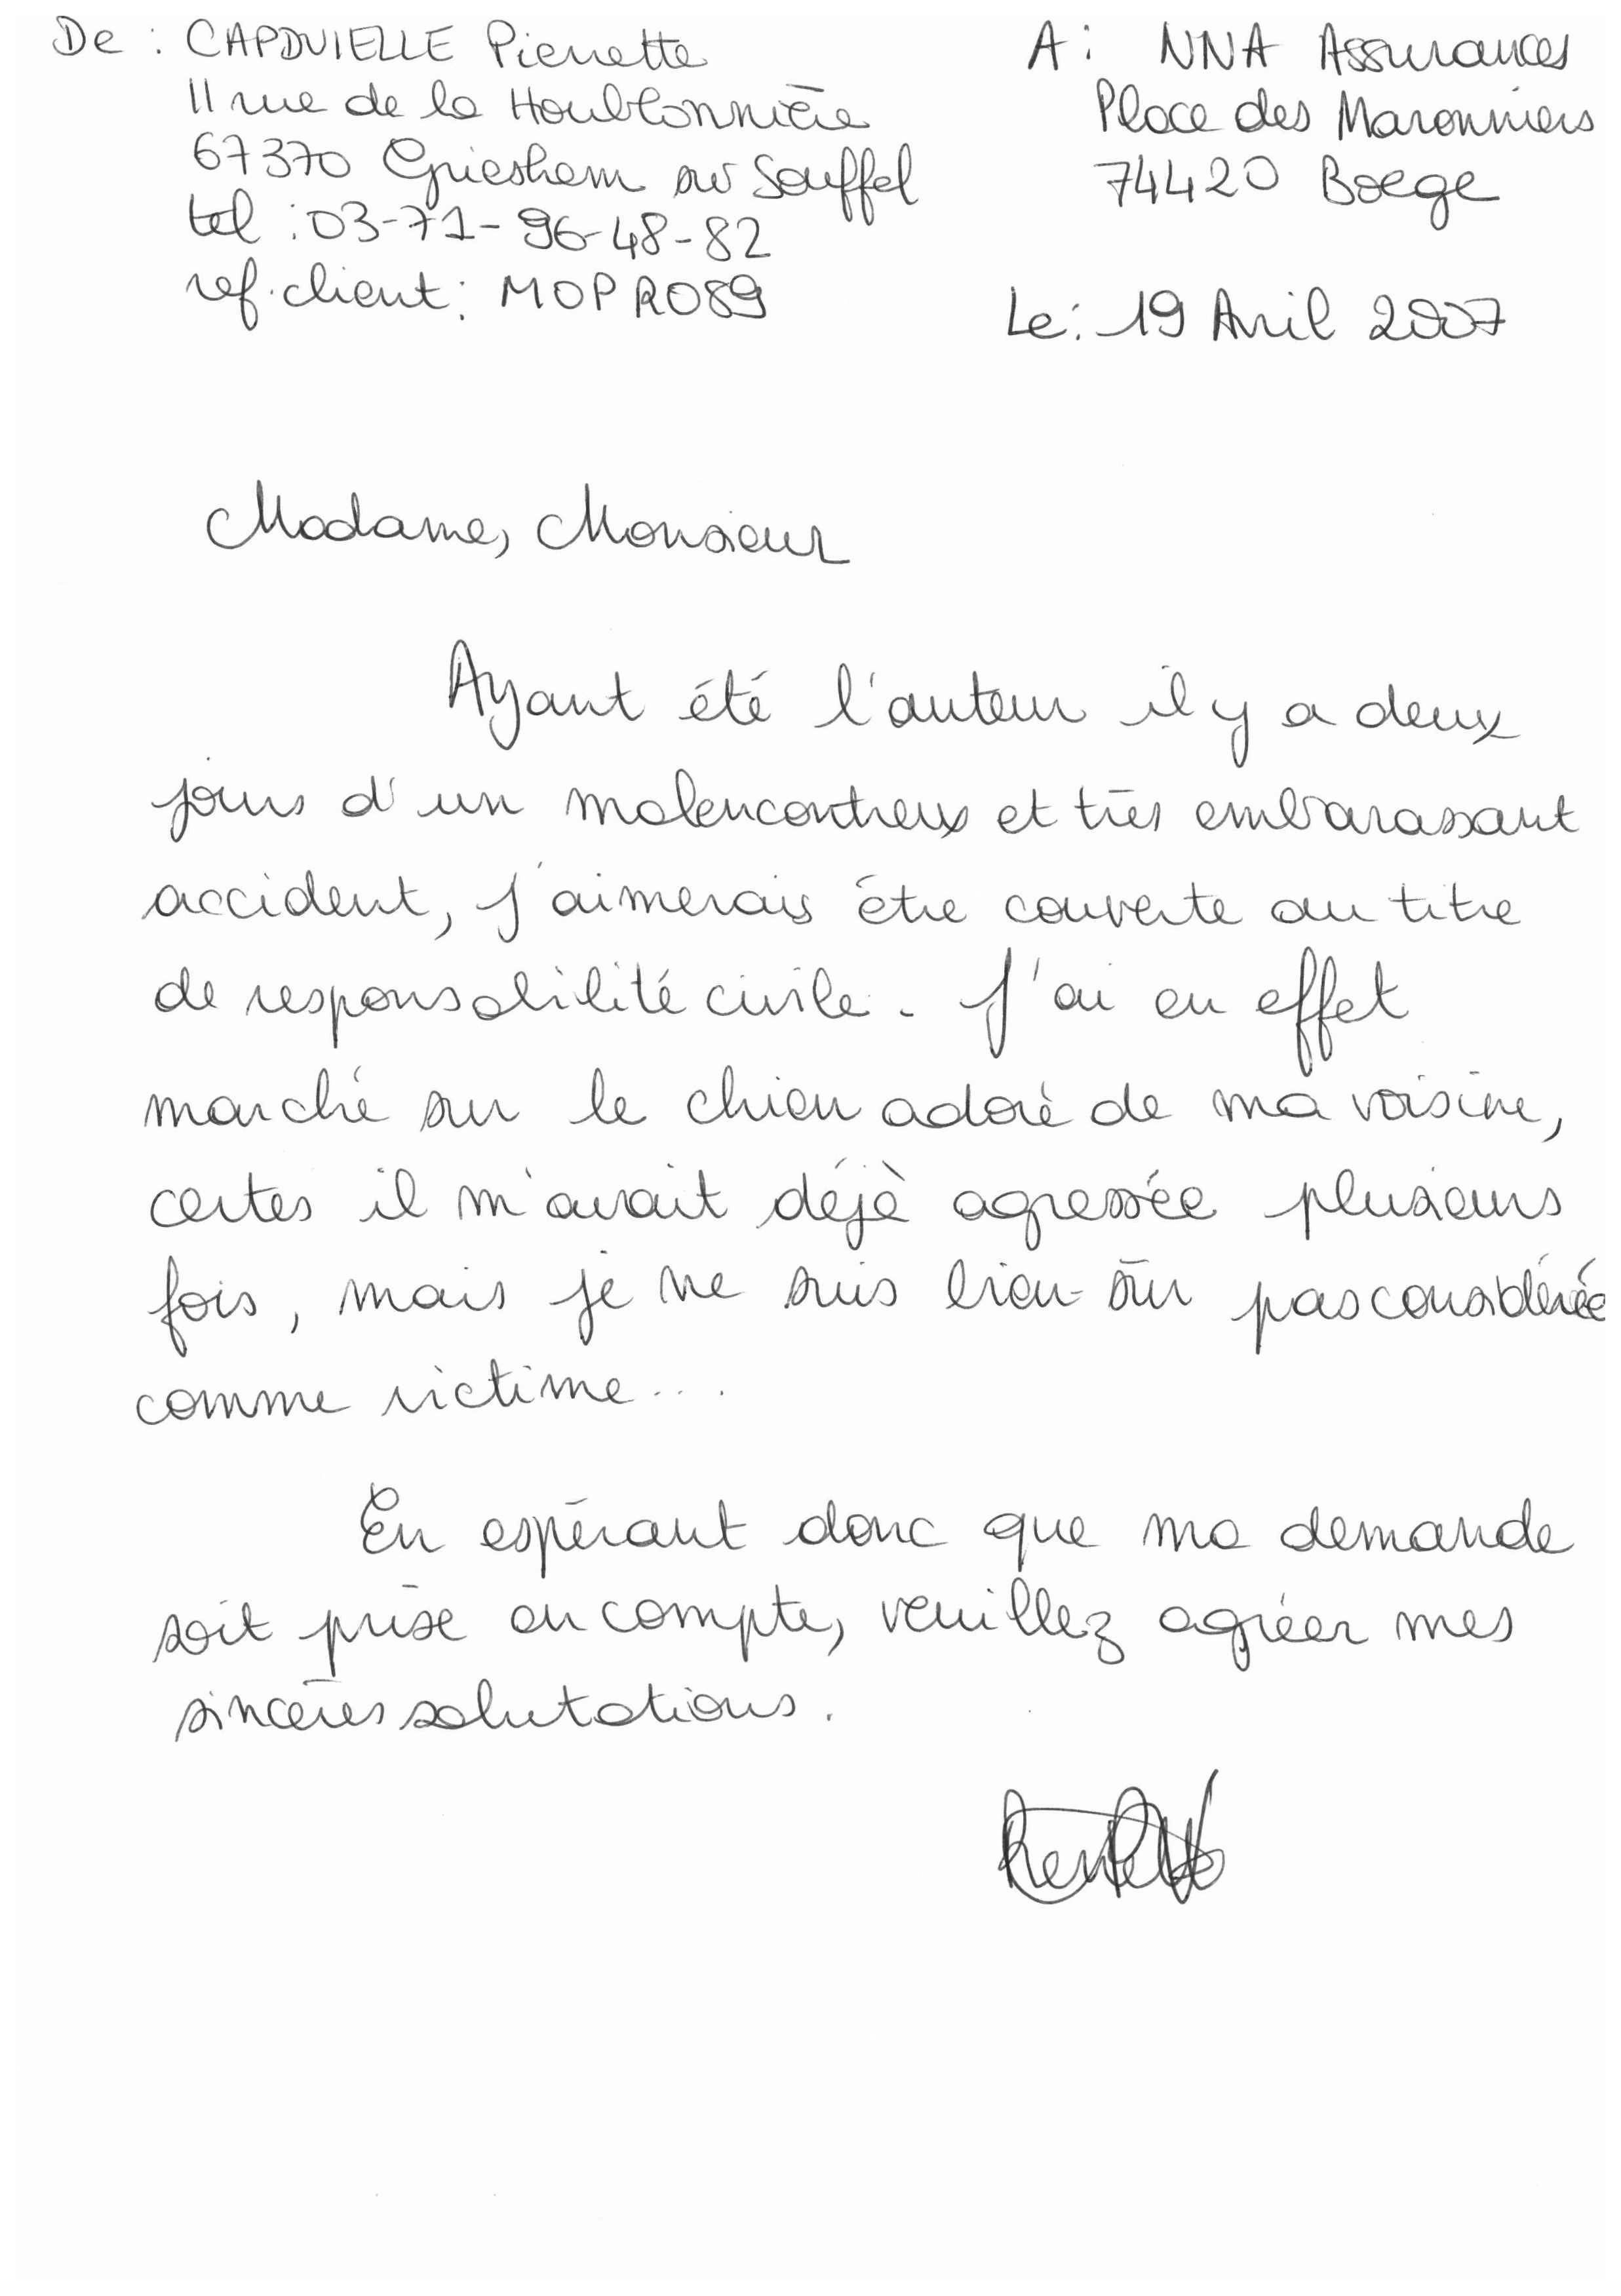 De : CAPDUIELLE Pierrette
11 rue de la Houblonnière
67370 Griesheim sur Souffel
tel : 03-71-96-48-82
ref. client : MOPRO89
A : NNA Assurances
Place des Maronniers
74420 Boege
Le : 19 Avril 2007
Madame, Monsieur
Ayant été l'auteur il y a deux
jours d'un malencontreux et très embarassant
accident, j'aimerais être couverte au titre
de responsabilité civile. J'ai en effet
marché sur le chien adoré de ma voisine,
certes il m'avait déjà agressée plusieurs
fois, mais je ne suis bien-sûr pas considérée
comme victime...
En espérant donc que ma demande
soit prise en compte, veuillez agréer mes
sincères salutations.